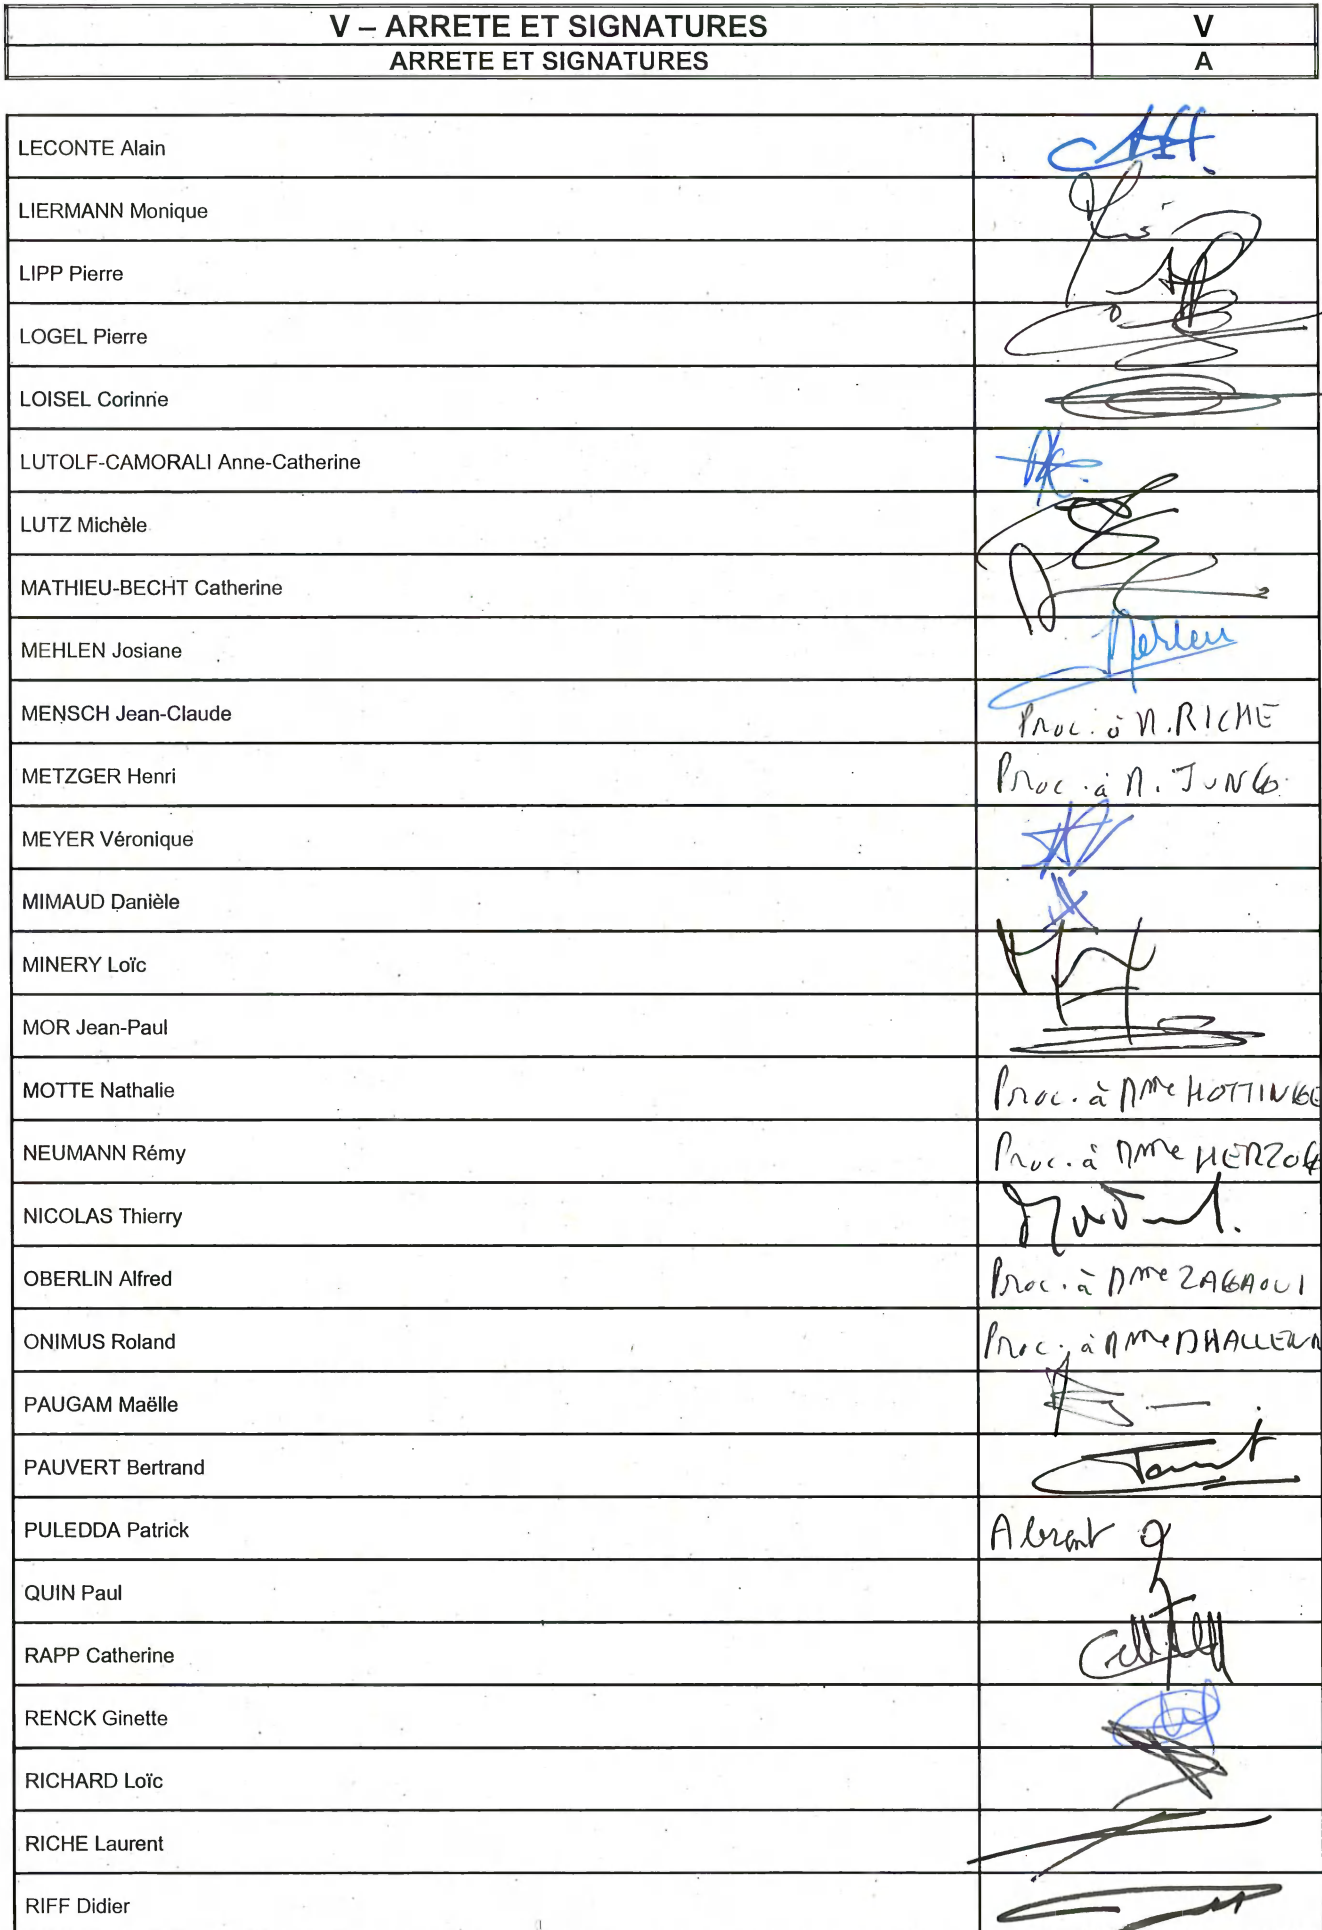 V – ARRETE ET SIGNATURES V
ARRETE ET SIGNATURES A
LECONTE Alain
LIERMANN Monique
LIPP Pierre
LOGEL Pierre
LOISEL Corinne
LUTOLF-CAMORALI Anne-Catherine
LUTZ Michèle
MATHIEU-BECHT Catherine
MEHLEN Josiane Mehlen
MENSCH Jean-Claude Proc. à M. RICHE
METZGER Henri Proc. à M. JUNG
MEYER Véronique
MIMAUD Danièle
MINERY Loïc
MOR Jean-Paul
MOTTE Nathalie Proc. à Mme HOTTINGE
NEUMANN Rémy Proc. à Mme HERZOG
NICOLAS Thierry
OBERLIN Alfred Proc. à Mme ZAGAOUI
ONIMUS Roland Proc. à Mme DHALLENN
PAUGAM Maëlle
PAUVERT Bertrand
PULEDDA Patrick Absent
QUIN Paul
RAPP Catherine
RENCK Ginette
RICHARD Loïc
RICHE Laurent
RIFF Didier